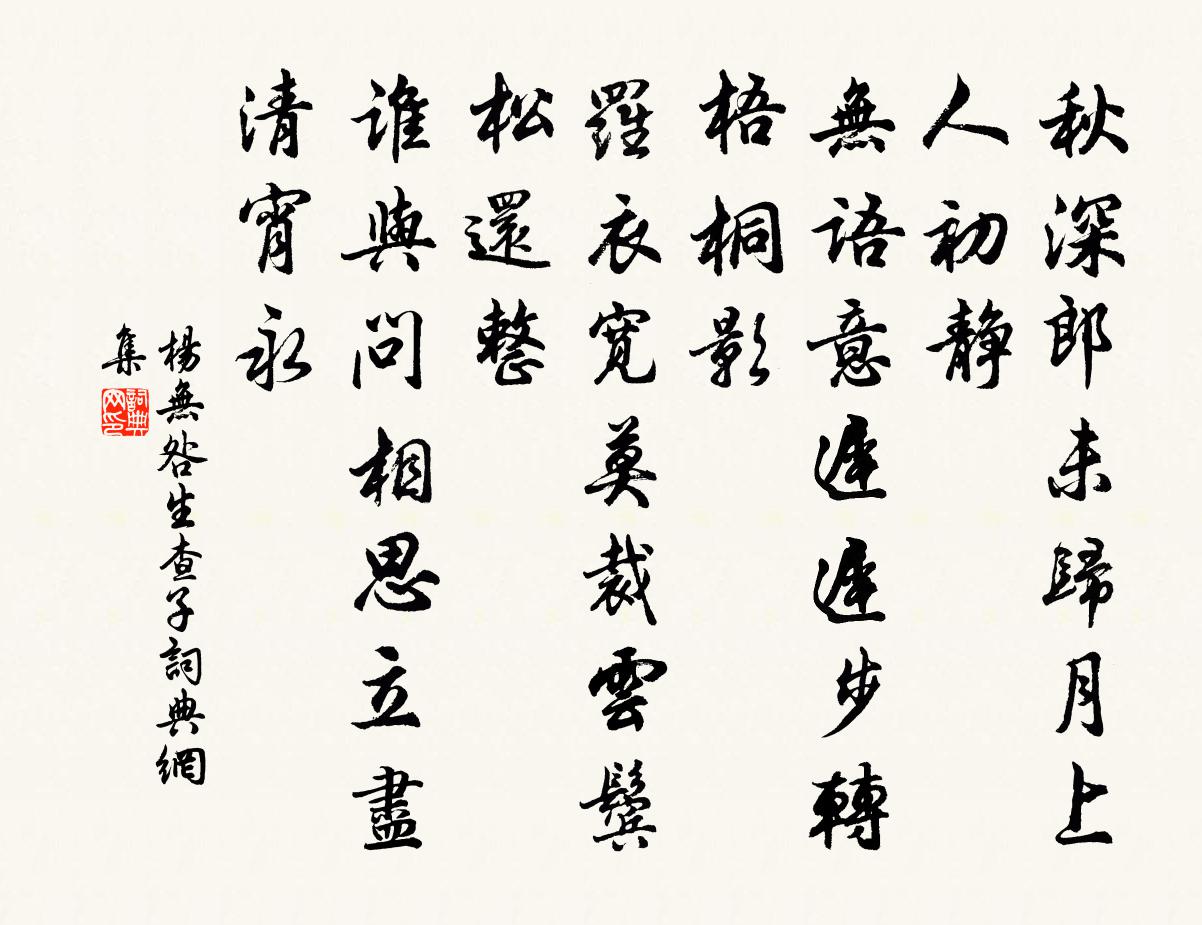 秋深郎未歸月上
人初靜
無語意遲遲步轉
梧桐影
羅衣寬莫裁雲鬢
松還整
誰與問相思立盡
清宵永
楊無咎生查子詞典網
集
詞典
网印